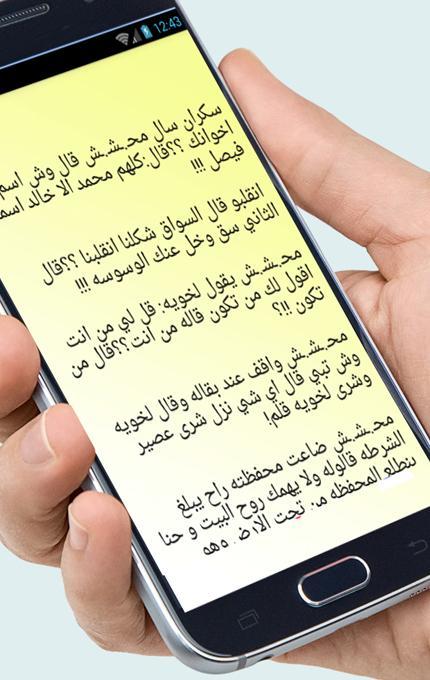 12:43
سكران سال محـ.شـ.ش قال وش اسم
اخوانك ؟؟قال:كلهم محمد الا خالد اسمه
فيصل !!!
انقلبو قال السواق شكلنا انقلبنا ؟؟قال
الثاني سق وخل عنك الوسوسه !!!
محـ.شـ.ش يقول لخويه: قل لي من انت
اقول لك من تكون قاله من انت؟؟قال من
تكون !!؟
محـ.شـ.ش واقف عند بقاله وقال لخويه
وش تبي قال اي شي نزل شرى عصير
وشرى لخويه قلم!
محـ.شـ.ش ضاعت محفظته راح يبلغ
الشرطه قالوله ولا يهمك روح البيت و حنا
بنطلع المحفظه من تحت الارض. وهو